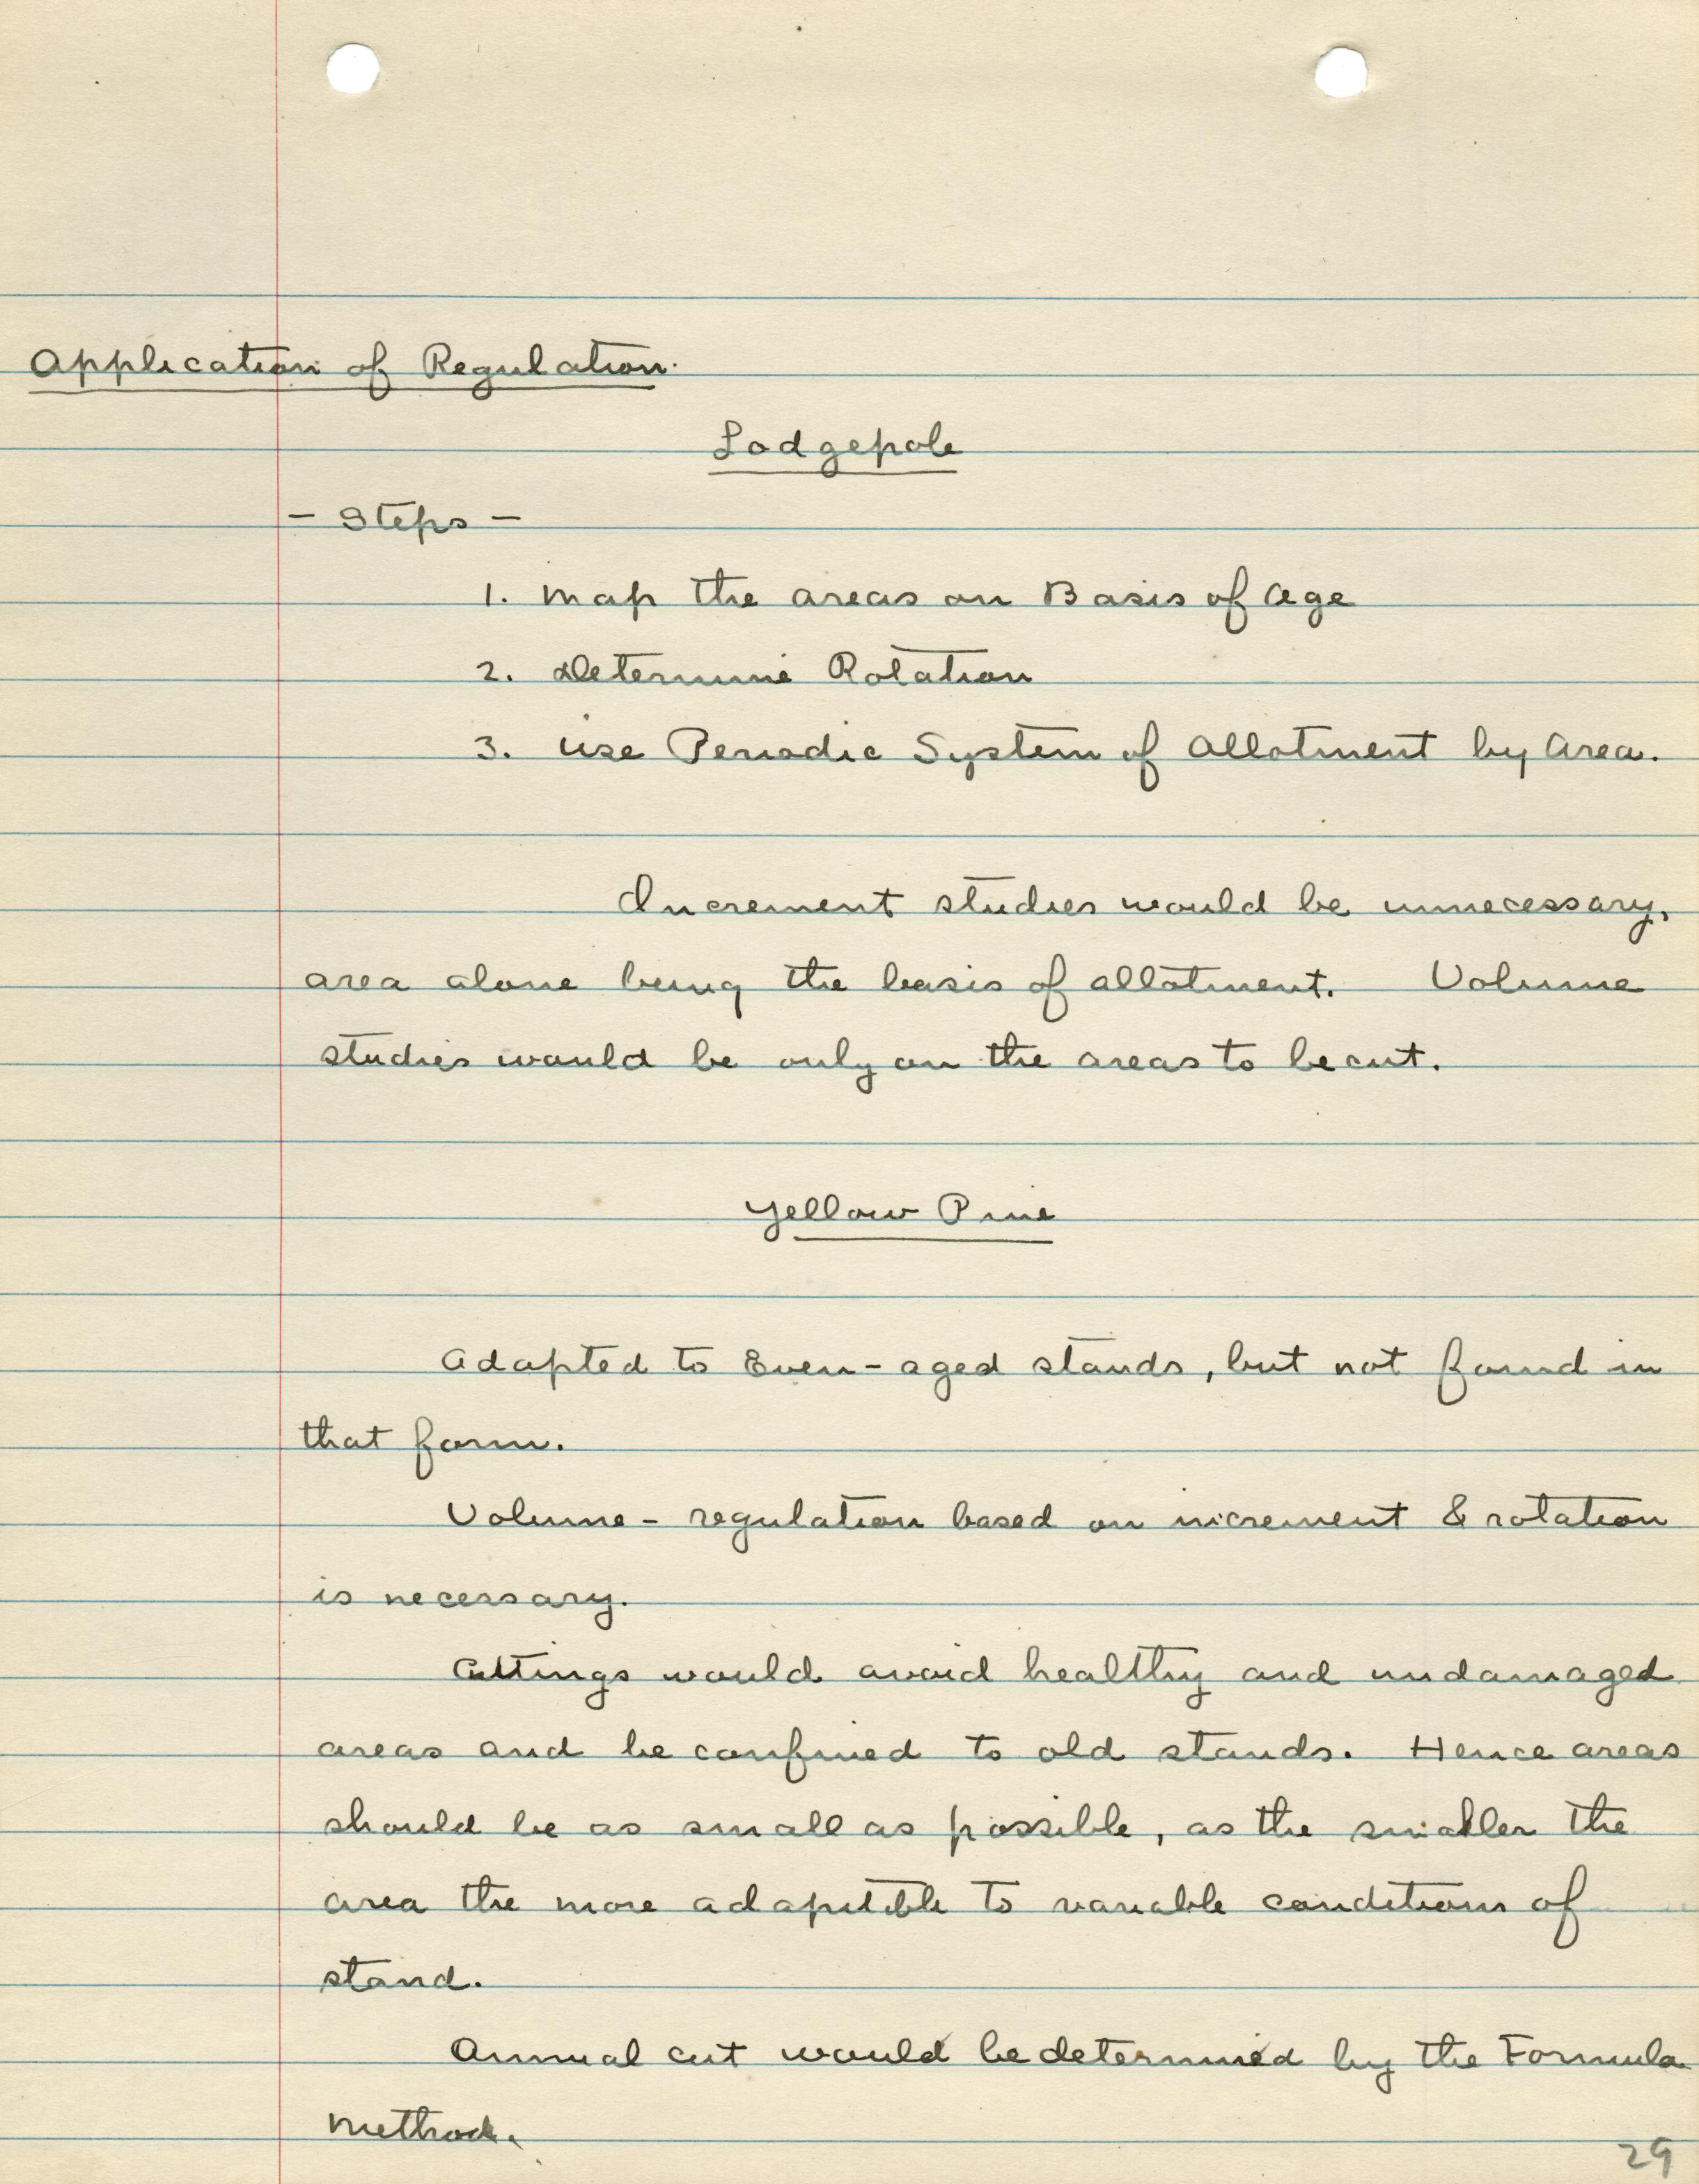 Application of Regulation.
Lodgepole
- Steps -
1. Map the areas on Basis of Age
2. Determine Rotation
3. Use Periodic System of Allotment by Area.
Increment studies would be unnecessary,
area alone being the basis of allotment. Volume
studies would be only on the areas to be cut.
Yellow Pine
Adapted to Even-aged stands, but not found in
that form.
Volume - regulation based on increment & rotation
is necessary.
Cuttings would avoid healthy and undamaged
areas and be confined to old stands. Hence areas
should be as small as possible, as the smaller the
area the more adaptible to variable conditions of
stand.
Annual cut would be determined by the Formula
Method.
29